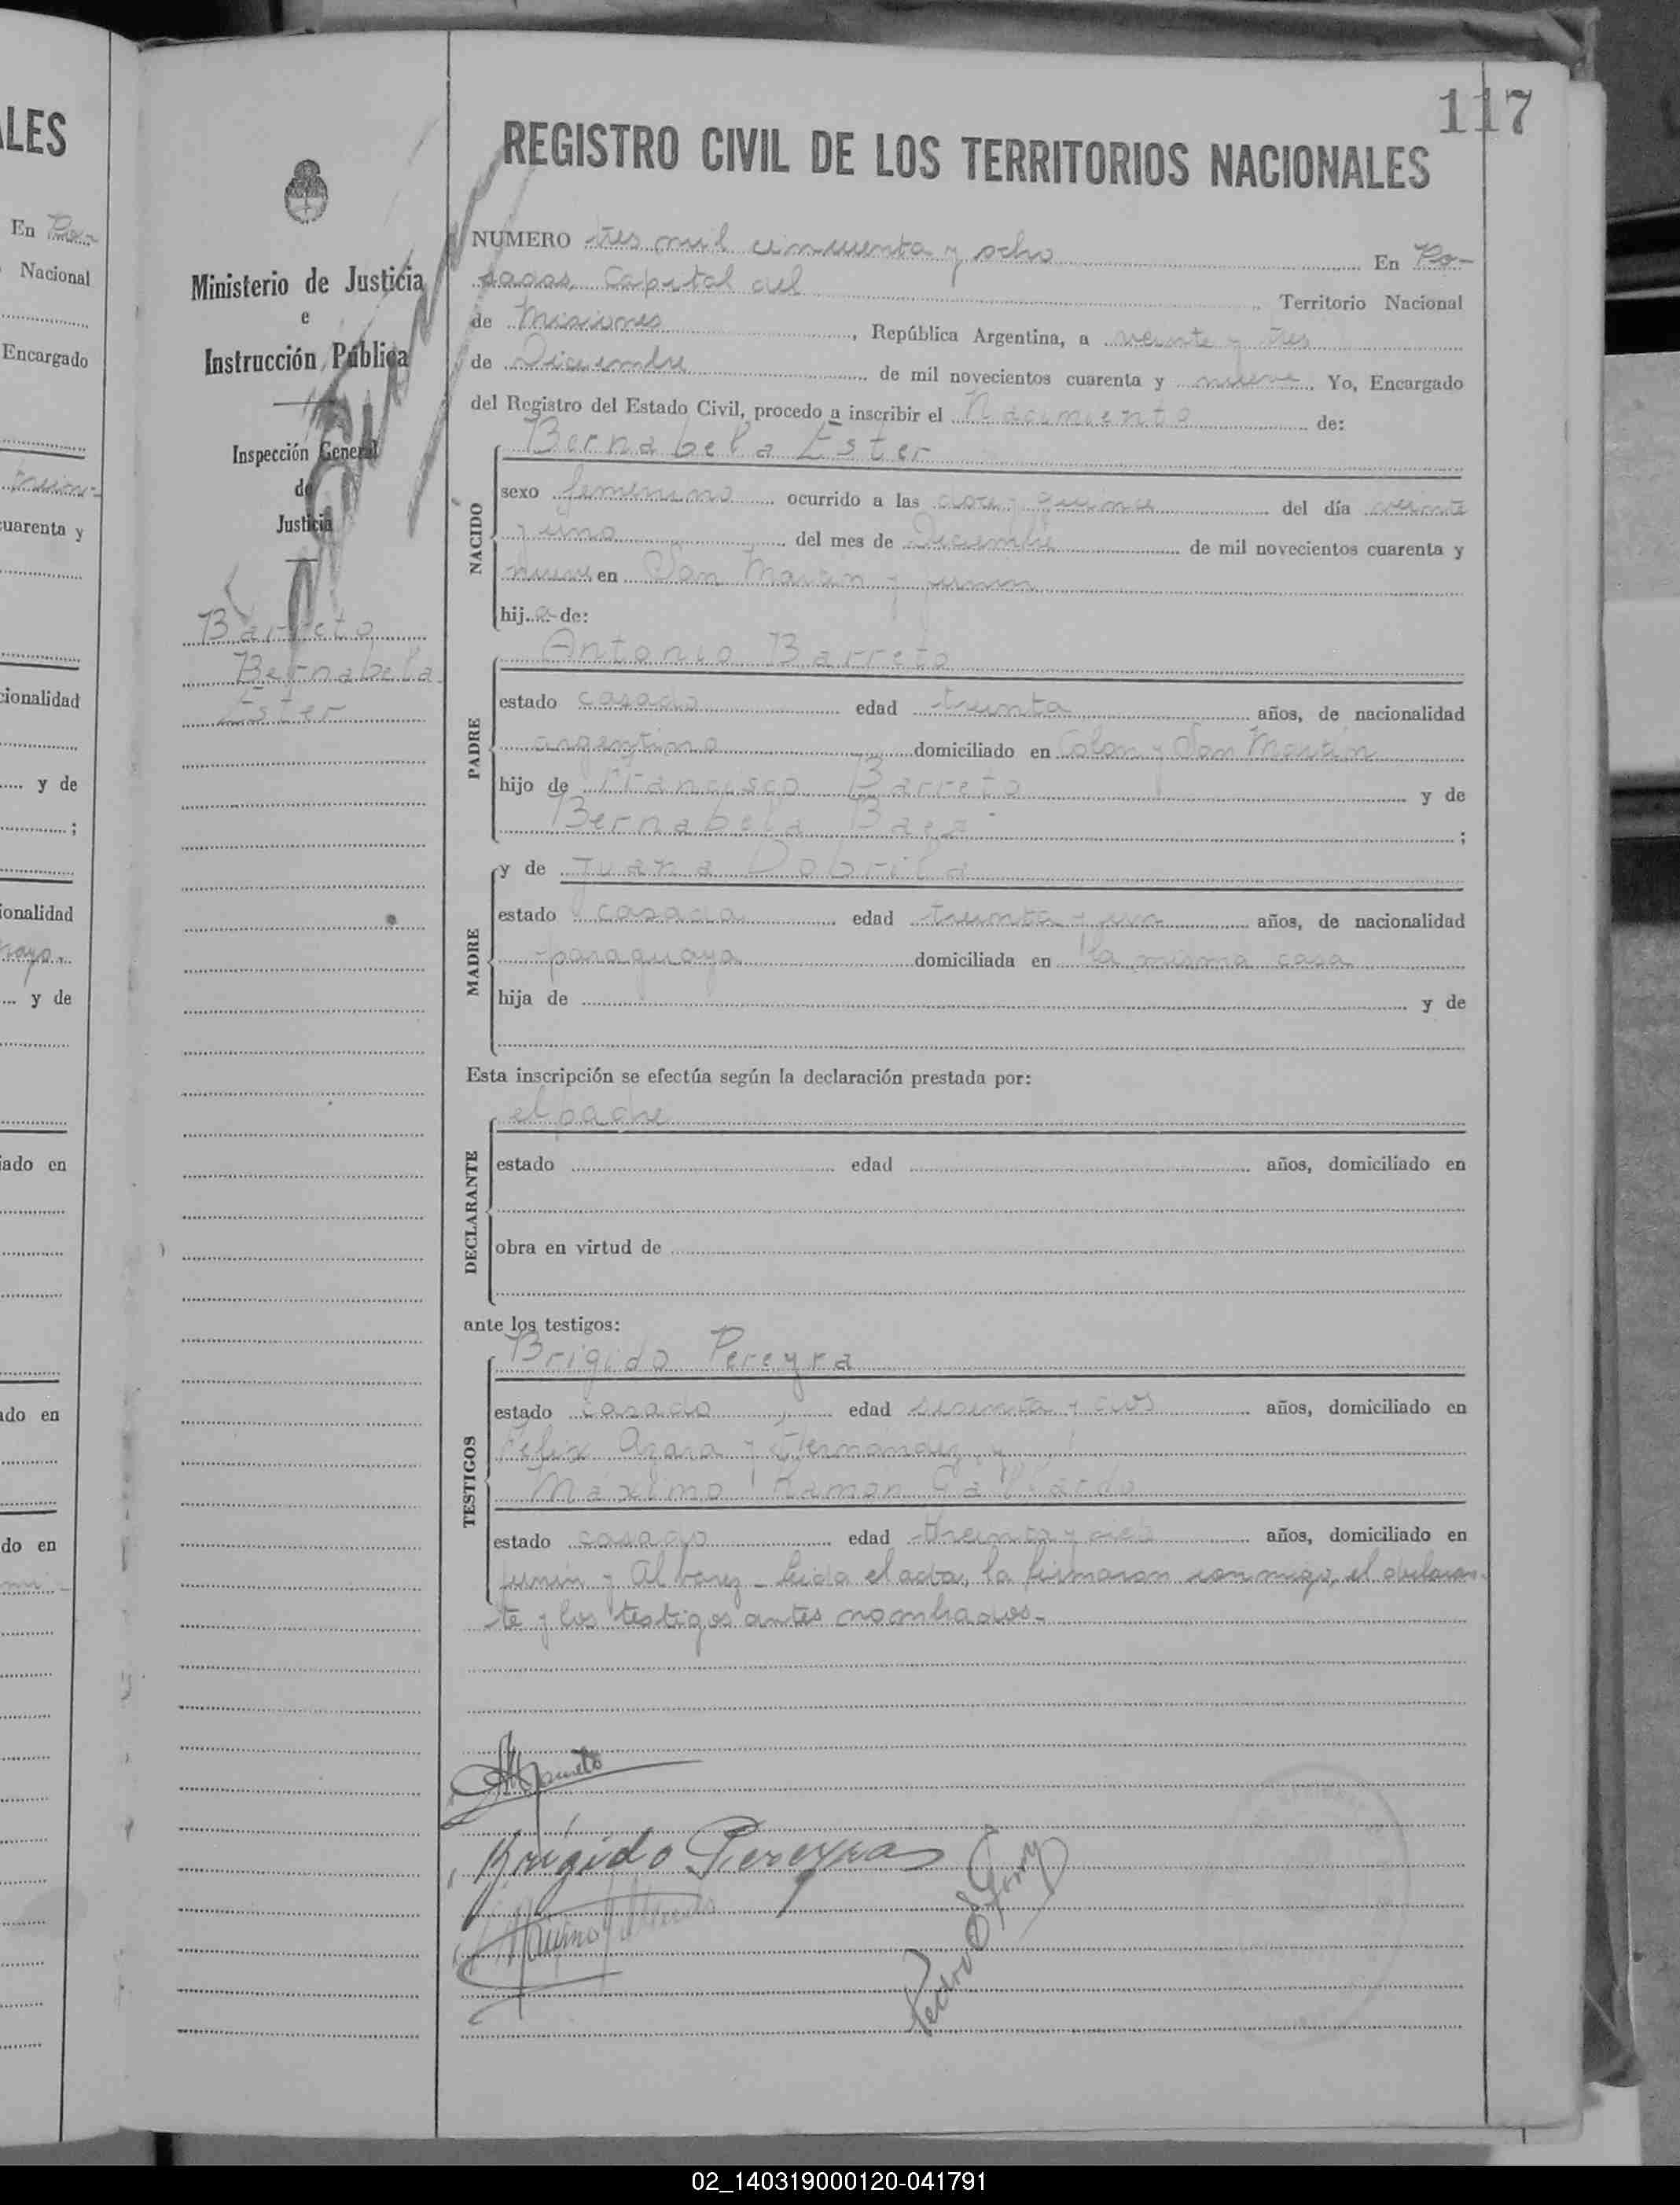 117
REGISTRO CIVIL DE LOS TERRITORIOS NACIONALES
NUMERO tres mil cincuenta y ocho En Po-
sadas, Capital del Territorio Nacional
de Misiones, República Argentina, a veinte y tres
de Diciembre de mil novecientos cuarenta y nueve. Yo, Encargado
del Registro del Estado Civil, procedo a inscribir el Nacimiento de:
NACIDO
Bernabela Ester
sexo femenino ocurrido a las doce y quince del día veinte
y uno del mes de Diciembre de mil novecientos cuarenta y
nueve en San Martin y Junin
hij a de:
PADRE
Antonio Barreto
estado casado edad treinta años, de nacionalidad
argentino domiciliado en Colon y San Martin
hijo de Francisco Barreto y de
Bernabela Baez ;
MADRE
y de Juana
estado casada edad treinta y un años, de nacionalidad
paraguaya domiciliada en la misma casa
hija de y de
Esta inscripción se efectúa según la declaración prestada por:
DECLARANTE
el padre
estado edad años, domiciliado en
obra en virtud de
ante los testigos:
TESTIGOS
Brigido Pereyra
estado casado edad sesenta y dos años, domiciliado en
Felix Azara y Hernandez y
Maximo Ramon Gallardo
estado casado edad treinta y años, domiciliado en
Junin y Alvarez - Leida el acta, la firmaron conmigo, el declaran-
te y los testigos antes nombrados.-
Brigido Pereyra
Ministerio de Justicia
e
Instrucción Pública
Inspección General
de
Justicia
Barreto
Bernabela
Ester
ALES
En Po-
Nacional
Encargado
cuarenta y
cionalidad
y de
;
ionalidad
y de
iado en
ado en
do en
02_140319000120-041791